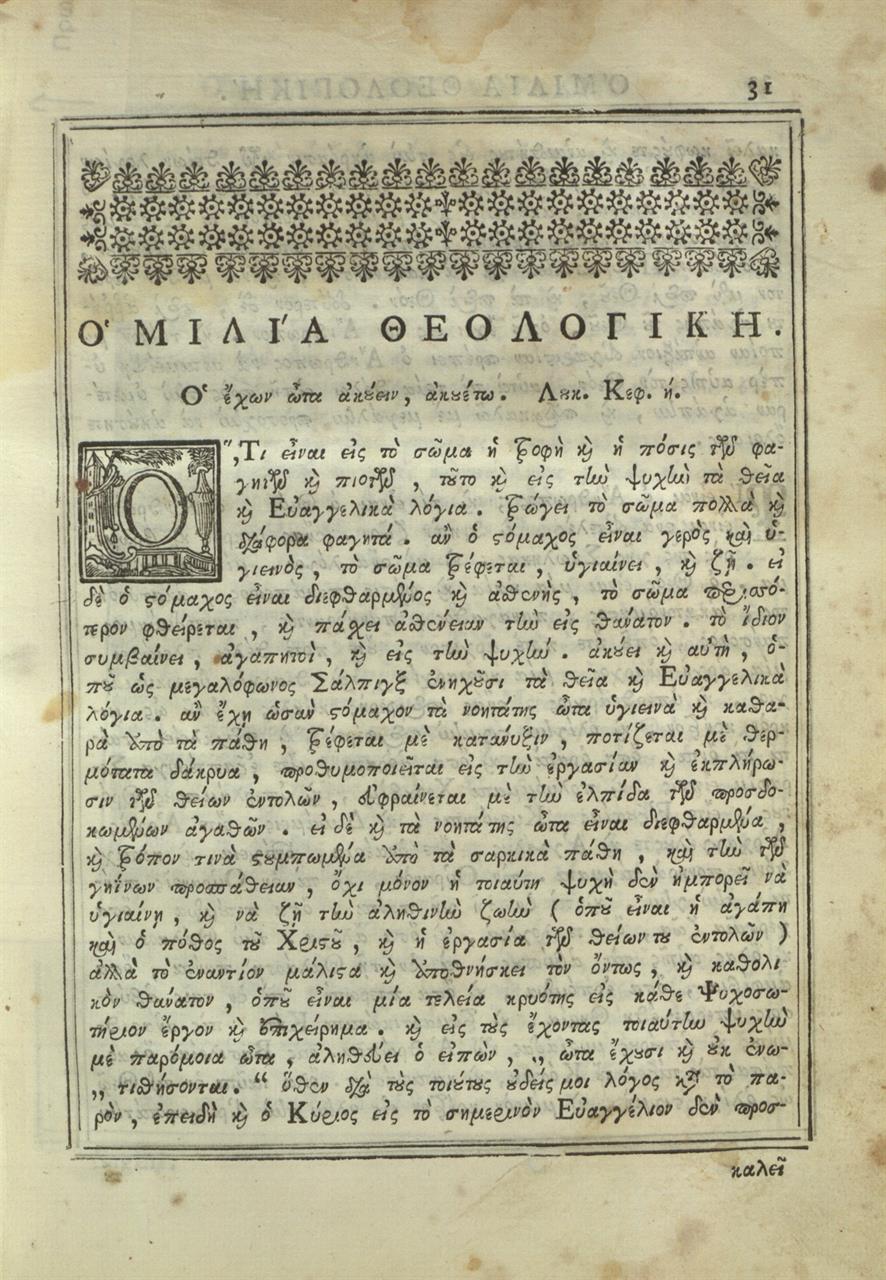 31
Ὁ ΜΙΛΙ'Α ΘΕΟΛΟΓΙΚΗ'.
Ὁ ἔχων ὦτα ἀκούειν, ἀκουέτω. Λουκ. Κεφ. ή.
Ὅ,Τι εἶναι εἰς τὸ σῶμα ἡ τροφὴ καὶ ἡ πόσις τῶν φα-
γητῶν καὶ πιοτῶν, τοῦτο καὶ εἰς τὴν ψυχὴν τὰ θεῖα
καὶ Εὐαγγελικὰ λόγια. τρώγει τὸ σῶμα πολλὰ καὶ
διάφορα φαγητά. ἂν ὁ στόμαχος εἶναι γερὸς καὶ ὑ-
γιεινὸς, τὸ σῶμα τρέφεται, ὑγιαίνει, καὶ ζῇ. εἰ
δὲ ὁ στόμαχος εἶναι διεφθαρμένος καὶ ἀσθενὴς, τὸ σῶμα περισσό-
τερον φθείρεται, καὶ πάσχει ἀσθένειαν τὴν εἰς θάνατον. τὸ ἴδιον
συμβαίνει, ἀγαπητοὶ, καὶ εἰς τὴν ψυχήν. ἀκούει καὶ αὐτὴ, ὁ-
ποῦ ὡς μεγαλόφωνος Σάλπιγξ ἐνηχοῦσι τὰ θεῖα καὶ Εὐαγγελικὰ
λόγια. ἂν ἔχῃ ὡσὰν στόμαχον τὰ νοητάτης ὦτα ὑγιεινὰ καὶ καθα-
ρὰ ἀπὸ τὰ πάθη, τρέφεται μὲ κατάνυξιν, ποτίζεται μὲ θερ-
μότατα δάκρυα, προθυμοποιεῖται εἰς τὴν ἐργασίαν καὶ ἐκπλήρω-
σιν τῶν θείων ἐντολῶν, εὐφραίνεται μὲ τὴν ἐλπίδα τῶν προσδο-
κωμένων ἀγαθῶν. εἰ δὲ καὶ τὰ νοητά της ὦτα εἶναι διεφθαρμένα,
καὶ τρόπον τινὰ στουμπωμένα ἀπὸ τὰ σαρκικὰ πάθη, καὶ τὴν τῶν
γηΐνων προσπάθειαν, ὄχι μόνον ἡ τοιαύτη ψυχὴ δὲν ἠμπορεῖ νὰ
ὑγιαίνῃ, καὶ νὰ ζῇ τὴν ἀληθινὴν ζωὴν ( ὁποῦ εἶναι ἡ ἀγάπη
καὶ ὁ πόθος τοῦ Χριστοῦ, καὶ ἡ ἐργασία τῶν θείων του ἐντολῶν )
ἀλλὰ τὸ ἐναντίον μάλιστα καὶ ἀποθνήσκει τὸν ὄντως, καὶ καθολι
κὸν θάνατον, ὁποῦ εἶναι μία τελεία κρυότης εἰς κάθε Ψυχοσω-
τήριον ἔργον καὶ ἐπιχείρημα. καὶ εἰς τοὺς ἔχοντας τοιαύτην ψυχὴν
μὲ παρόμοια ὦτα, ἀληθεύει ὁ εἰπὼν, „ ὦτα ἔχουσι καὶ οὐκ ἐνω-
„ τιθήσονται. “ ὅθεν διὰ τοὺς τοιούτους οὐδείς μοι λόγος κατὰ τὸ πα-
ρὸν, ἐπειδὴ καὶ ὁ Κύριος εἰς τὸ σημερινὸν Εὐαγγέλιον δὲν προσ-
καλεῖ